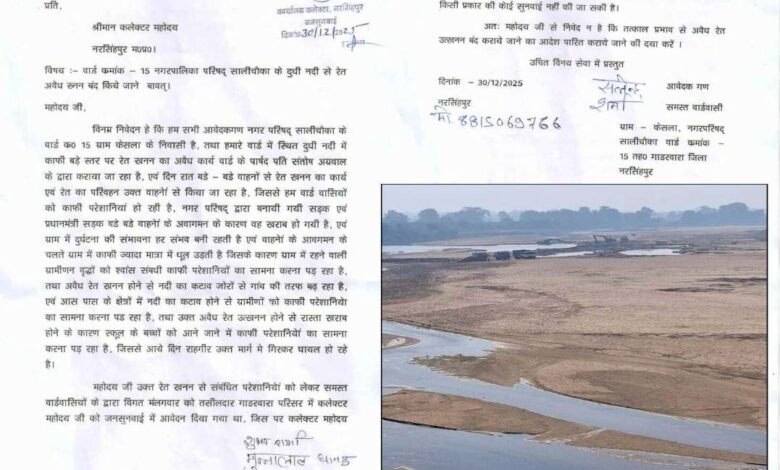 प्रति,
श्रीमान कलेक्टर महोदय
नरसिंहपुर म०प्र०।
कार्यालय कलेक्टर, नरसिंहपुर
जनसुनवाई
दिनांक 30/12/2025
विषय :- वार्ड कमांक - 15 नगरपालिका परिषद् सालीचोका के दुधी नदी से रेत
अवैध खनन बंद किये जाने बावत्।
महोदय जी,
विनम्र निवेदन हे कि हम सभी आवेदकगण नगर परिषद् सालीचोका के
वार्ड क0 15 ग्राम केसला के निवासी है, तथा हमारे वार्ड में स्थित दुधी नदी में
काफी बड़े स्तर पर रेत खनन का अवैध कार्य वार्ड के पार्षद पति संतोष अग्रवाल
के द्वारा कराया जा रहा है, एवं दिन रात बडे - बडे वाहनों से रेत खनन का कार्य
एवं रेत का परिवहन उक्त वाहनों से किया जा रहा है, जिससे हम वार्ड वासियों
को काफी परेशानियां हो रही है, नगर परिषद् द्वारा बनायी गयी सड़क एवं
प्रधानमंत्री सड़क बडे बडे वाहनों के अवागमन के कारण वह खराब हो गयी है, एवं
ग्राम में दुर्घटना की संभावना हर संभव बनी रहती है एवं वाहनों के आवगमन के
चलते ग्राम में काफी ज्यादा मात्रा में धूल उडती है जिसके कारण ग्राम में रहने वाली
ग्रामीणन वृद्धों को श्वांस संबधी काफी परेशानियों का सामना करना पड़ रहा है,
तथा अवैध रेत खनन होने से नदी का कटाव जोरों से गांव की तरफ बढ़ रहा है,
एवं आस पास के क्षेत्रों में नदी का कटाव होने से ग्रामीणों को काफी परेशानियों
का सामना करना पड रहा है, तथा उक्त अवैध रेत उत्खनन होने से रास्ता खराब
होने के कारण स्कूल के बच्चों को आने जाने में काफी परेशानियों का सामना
करना पड़ रहा है, जिससे आये दिन राहगीर उक्त मार्ग मे गिरकर घायल हो रहे
है।
महोदय जी उक्त रेत खनन से संबंधित परेशानियों को लेकर समस्त
वार्डवासियों के द्वारा विगत मंलगवार को तसीलदार गाडरवारा परिसर में कलेक्टर
महोदय जी को जनसुनवाई में आवेदन दिया गया था, जिस पर कलेक्टर महोदय
मुन्नालाल
किसी प्रकार की कोई सुनवाई नहीं की जा सकी है।
अतः महोदय जी से निवेद न है कि तत्काल प्रभाव से अवैध रेत
उत्खनन बंद कराये जाने का आदेश पारित कराये जाने की दया करें ।
उचित विनय सेवा में प्रस्तुत
दिनांक - 30/12/2025
आवेदक गण
नरसिंहपुर
शर्मा
समस्त वार्डवासी
मो. 8815069766
ग्राम - केसला, नगरपरिषद्
सालीचोका वार्ड कमांक -
15 तह0 गाडरवारा जिला
नरसिंहपुर